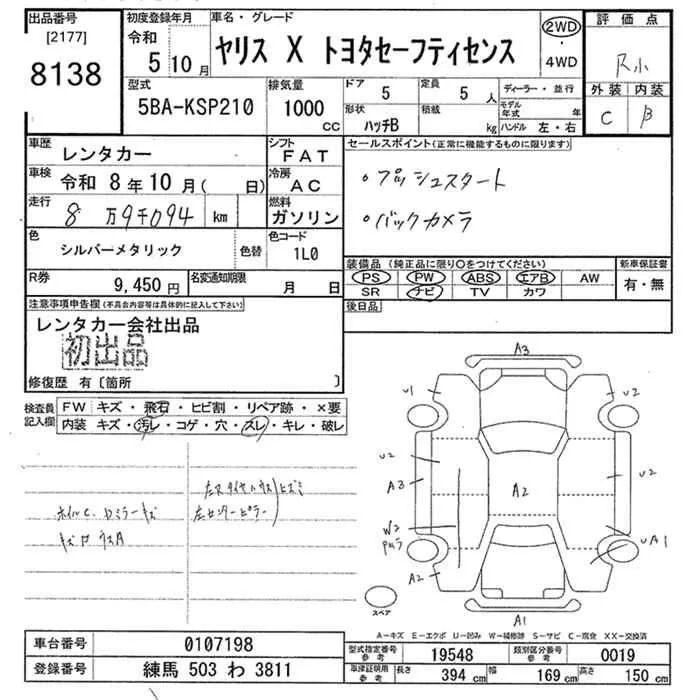 出品番号
[2177]
8138
初度登録年月
令和
5 10月
車名・グレード
ヤリス X トヨタセーフティセンス
2WD
・
4WD
評価点
R小
外装 内装
C B
型式
5BA-KSP210
排気量
1000
CC
ドア
5
定員
5 人
形状
ハッチB
積載
kg
ディーラー・並行
モデル年式 年
ハンドル 左・右
車歴
レンタカー
シフト
FAT
車検 令和 8年10月( 日)
冷房
AC
走行
8 万9千094 km
燃料
ガソリン
色
シルバーメタリック
色替
色コード
1L0
R券
9,450円
名変通知期限
月 日
セールスポイント(正常に機能するものに限ります)
・プッシュスタート
・バックカメラ
装備品 (純正品に限り○をつけてください)
PS PW ABS エアB AW
SR ナビ TV カワ
新車保証書
有・無
後日品
注意事項申告欄(不具合内容等は具体的に記入して下さい)
レンタカー会社出品
初出品
修復歴 有〔箇所 〕
検査員記入欄
FW キズ・飛石・ヒビ割・リペア跡・×要
内装 キズ・汚レ・コゲ・穴・スレ・キレ・破レ
A3
U1
U2
U2
A3
A2
U2
W2
UA1
A2
A1
スペア
A-キズ E-エクボ U-凹み W-補修跡 S-サビ C-腐食 XX-交換済
車台番号
0107198
登録番号
練馬 503 わ 3811
型式指定番号参考
19548
類別区分番号参考
0019
車検証明用参考
長さ
394 cm
幅
169 cm
高さ
150 cm